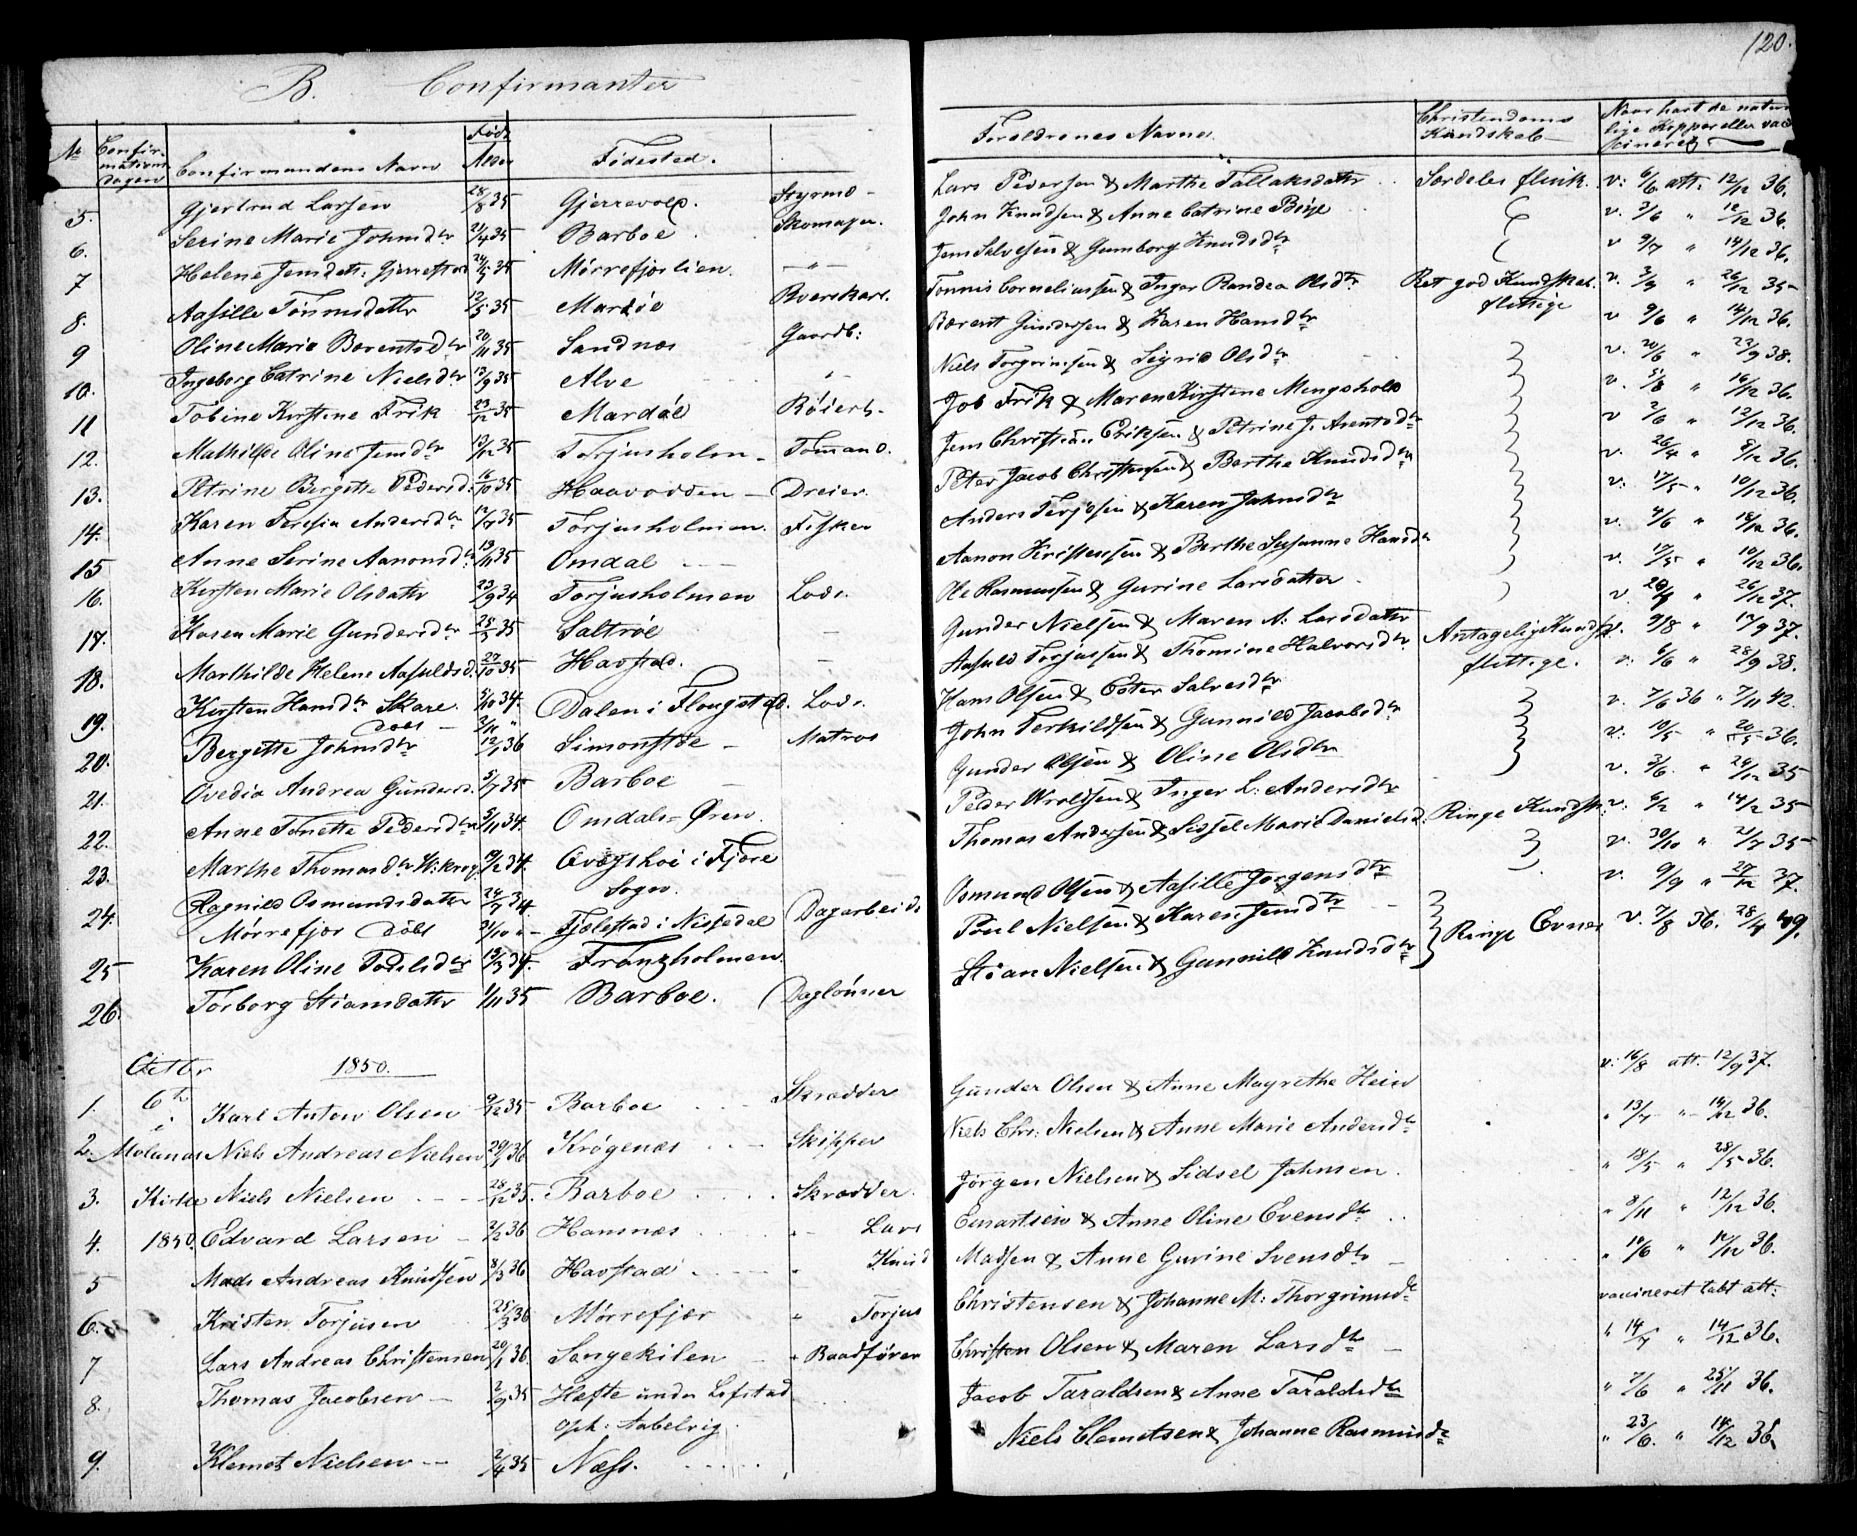 120.
B. Confirmanter
No Confirmationsdagen Confirmandens Navn Født Alder Fødested. Forældrenes Navne. Christendoms Kundskab Naar havt de naturlige Kopper eller vaccineret
5. Gjertrud Larsen 28/8 35 Gjerrevold. Styrmd - Lars Pedersen & Marthe Tallaksdatter Særdeles flink. v: 6/6 att: 12/12 36.
6. Serine Marie Johnsdtr 21/4 35 Barboe Skomager. John Knudsen & Anne Catrine Boye v. 3/6 " 12/12 36.
7 Helene Jensdatr: Gjerrestad 24/5 35 Mørrefjerlien. - " - Jens Salvesen & Gunnborg Knudsdtr v 9/7 " 14/12 36.
8. Aasille Tønnisdatter 12/5 35 Mardøe Tønnis Corneliussen & Inger Randea Olsdtr Ret god Kundskab. flittige v. 3/9 " 26/12 35
9 Oline Marie Berentsdtr 20/11 35 Sandnæs Gaardb: Berent Gundersen & Karen Hansdtr v 9/6 " 14/12 36.
10. Ingeborg Catrine Nielsdtr 13/9 35 Alve " Niels Torgrimsen & Sigrid Olsdtr v. 20/6 " 23/9 38.
11 Tobine Kirstine Frik 23/12 35 Mardøe Røierb- Job Frik & Maren Kirstine Mengshold v. 5/8 " 16/12 36.
12. Mathilde Oline Jensdtr 13/12 35 Torjusholm - Tømand. Jens Christian Eriksen & Petrine J. Arentsdtr v 2/6 " 12/12 36.
13. Petrine Bergitte Pedersd. 16/10 35 Haavodden - Dreier. Peter Jacob Christensen & Berthe Knudsdtr v. 26/4 " 8/12 36.
14. Karen Teresia Andersdtr 12/7 35 Torjusholmen. Fisker Anders Terjesen & Karen Jahnsdtr v: 17/5 " 10/12 36.
15 Anne Serine Aanonsdtr 13/11 35 Omdal - - Aanon Kristensen & Berthe Susanne Hansdtr v. 4/6 " 14/12 36.
16. Kirsten Marie Olsdatter 23/9 34 Torjusholmen Lods. Ole Rasmussen & Gurine Larsdatter v. 17/5 " 10/12 36.
17. Karen Marie Gundersdtr 25/5 35 Saltrøe - Gunder Nielsen & Maren A: Larsdatter " 26/12 37.
18. Marthilde Helene Aasuldsd. 27/10 35 Havstad. - Aasuld Torjussen & Thomine Halvorsdtr Antagelig Kundsk. flittige. v. 9/8 " 17/9 37.
19. Kirsten Hansdtr Skare. 5/10 34. Dalen i Flougstad. Lods. Hans Olsen & Ester Salvesdtr v: 6/6 " 28/9 38.
Døbt - 2/11 "
20. Bergitte Johnsdtr 12/1 36 Simonstøe - Matros John Terkildsen & Gunnild Jacobsdtr v. 7/6 36 " 7/11 42.
21. Ovedia Andrea Gundersd. 5/7 35 Barboe - Gunder Olsen & Oline Olsdtr v: 10/5 " 36.
22. Anne Tonette Pedersdtr 5/11 34. Omdals-Øren. Peder Wroldsen & Inger L: Andersdtr v. 3/6. " 24/12 35
23. Marthe Thomasdtr 9/2 34. i Fjære Sogn. Thomas Andersen & Sissel Marie Danielsd. Ringe Kundsk: v: 6/2 " 14/12 35
24. Ragnild Osmundsdatter 24/7 34 Osmund Olsen & Aasille Jørgensdtr v. 30/10 " 2/7 35
Mørrefjær Døbt 2/10 " - Fjælestad i Nissedal Dagarbeid
25 Karen Oline Povelsdtr 13/3 34. Franzholmen. Poul Nielsen & Karen Jensdtr v. 9/9 " 27/12 37.
26. Torborg Stiansdatter 1/11 35 Barboe. Daglønner Stian Nielsen & Gunnild Knudsdtr Ringe Evner v. 7/8 36. 28/4 49.
Octbr 1850.
1. 6te Karl Anton Olsen 9/12 35 Barboe Skrædder Gunder Olsen & Anne Magrethe Hein v: 16/8 att. 12/9 37.
i
2. Molands Niels Andreas Nielsen 29/1 36 Krøgenæs Skipper Niels Chr: Nielsen & Anne Marie Andersdtr " 13/7 " 14/12 36.
3. Kirke Niels Nielsen 28/12 35. Barboe Skrædder. Jørgen Nielsen & Sidsel Jahnsen. " 18/5 " 28/5 36.
4. 1850. Edvard Larsen - 2/2 36 Hansnæs " Lars Einartsen & Anne Oline Evensdtr " 8/11 " 12/12 36.
5 Mads Andreas Knudsen 8/3 36 Havstad " Knud Madsen & Anne Gurine Svensdtr - " 10/6 " 14/12 36.
6. Kristen Torjusen 25/3 36 Mørrefjær " Torjus Christensen & Johanne M: Thorgrimsdtr vaccineret tabt att:
7 Lars Andreas Christensen 20/1 36. Songekilen " Baadfører Christen Olsen & Maren Larsdtr - " 14/7 " 14/12 36.
8. Thomas Jacobsen - 2/9 35 Hefte under Lofstad Jacob Taraldsen & Anne Taraldsdtr " 7/6 " 25/11 36.
oph: Aabelvig.
9. Klemet Nielsen - 2/4 35 Næss. Niels Clemetsen & Johanne Rasmusdtr " 23/6. " 14/12 36.